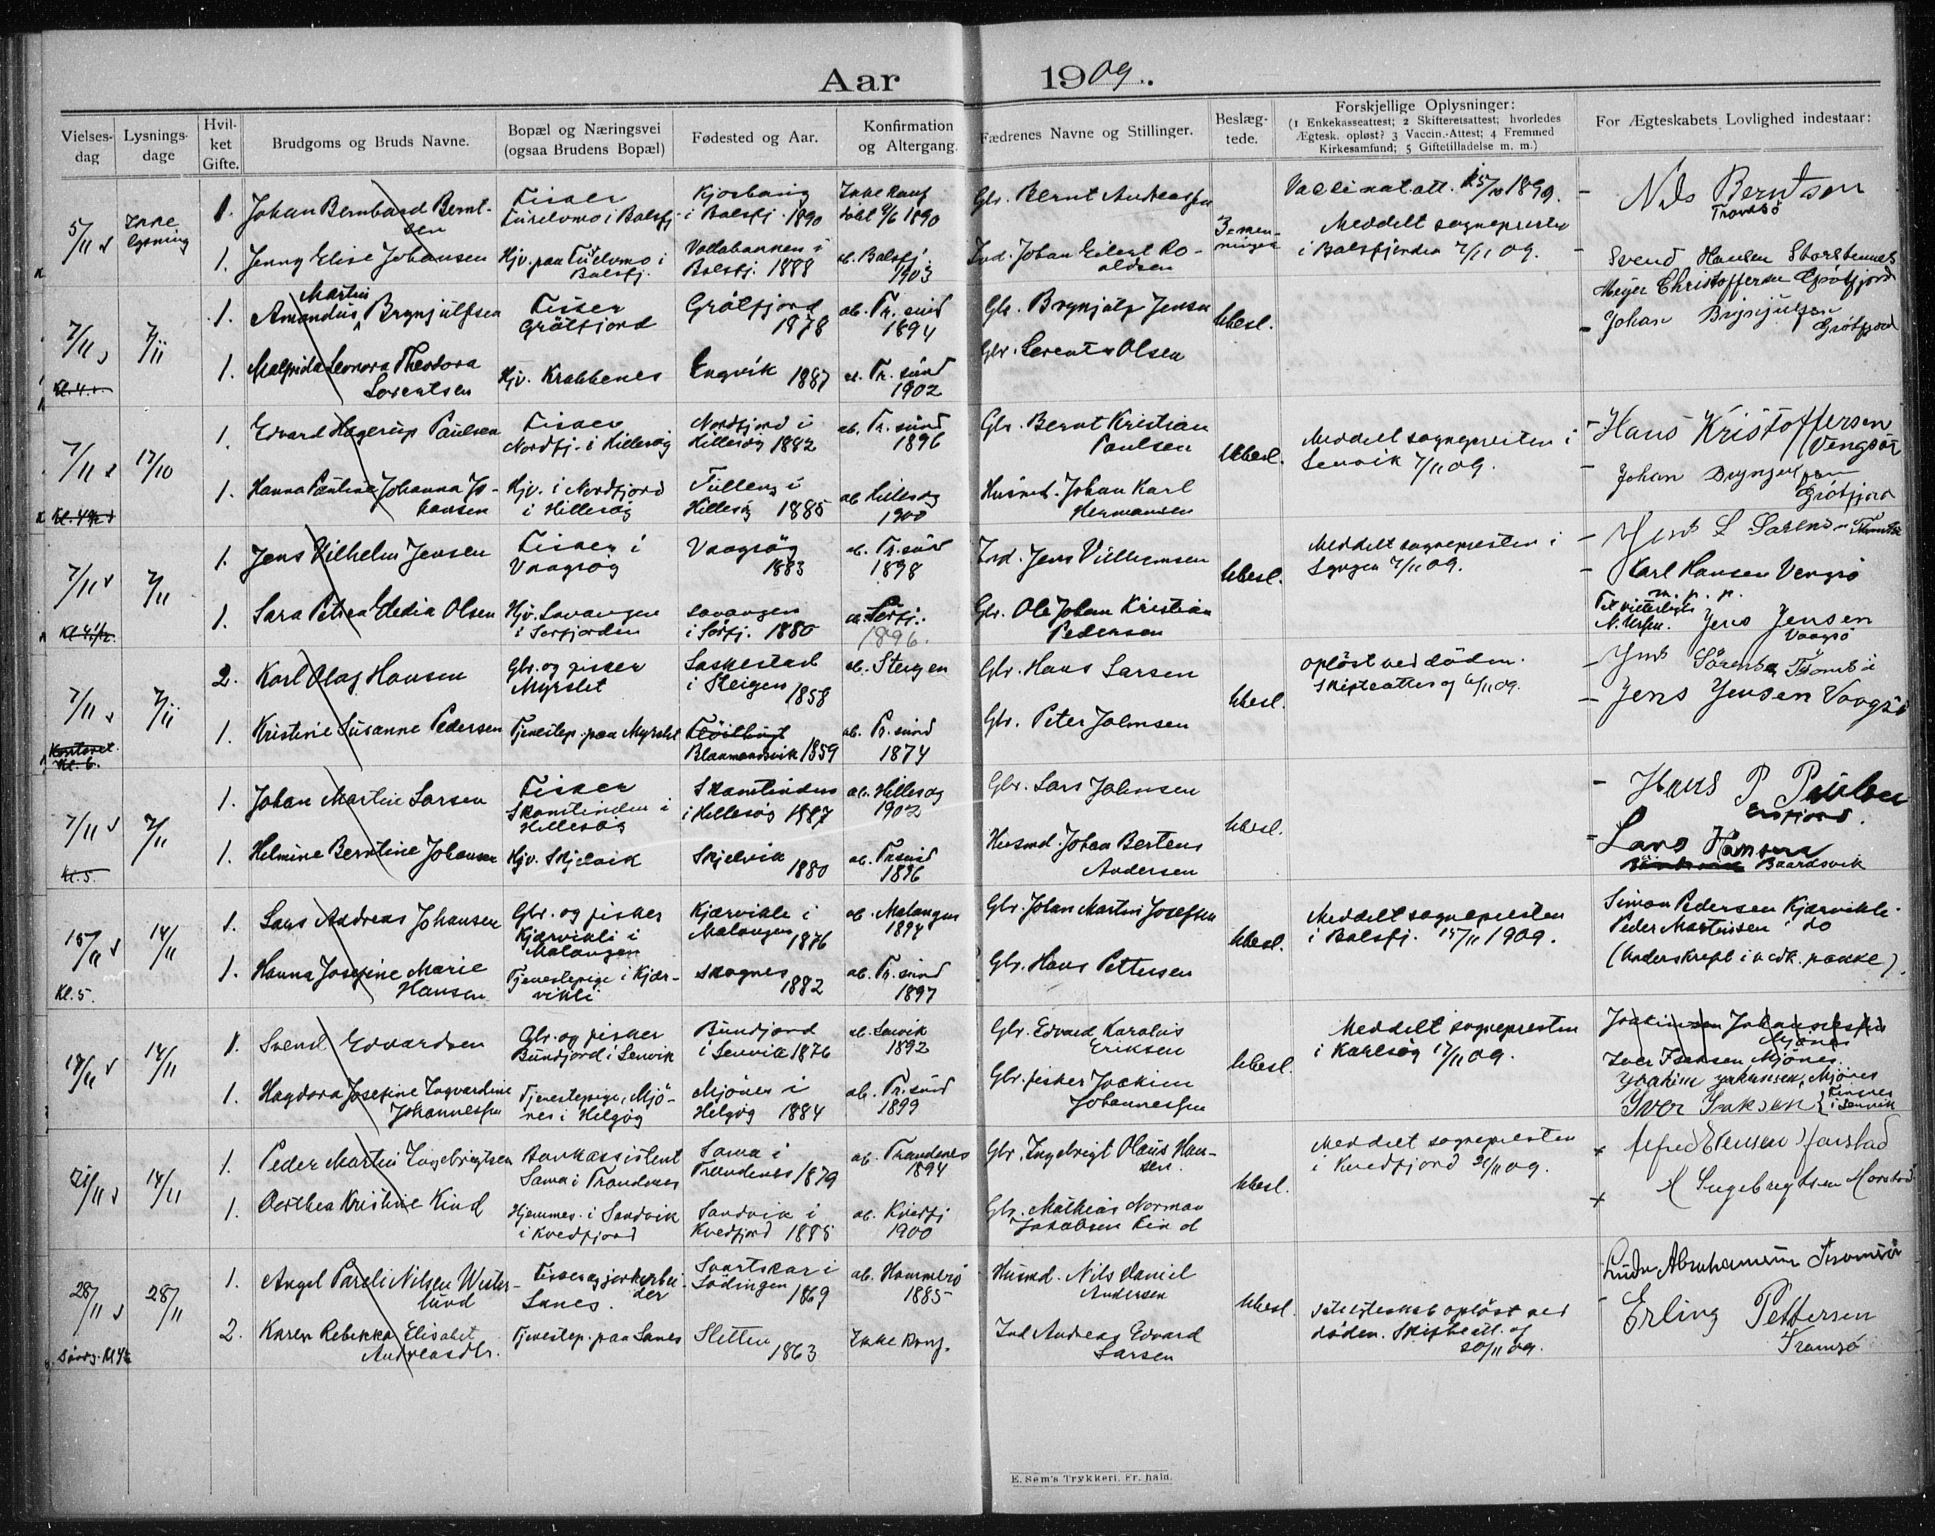 Aar 1909.
Vielses- dag
Lysnings- dage
Hvil- ket Gifte.
Brudgoms og Bruds Navne.
Bopæl og Næringsvei (ogsaa Brudens Bopæl)
Fødested og Aar.
Konfirmation og Altergang.
Fædrenes Navne og Stillinger.
Beslæg- tede.
Forskjellige Oplysninger: (1 Enkekasseattest; 2 Skifteretsattest; hvorledes Ægtesk. opløst? 3 Vaccin.-Attest; 4 Fremmed Kirkesamfund; 5 Giftetilladelse m. m.)
For Ægteskabets Lovlighed indestaar:
5/11 Ikke lysning
1. Johan Bernhard Bernt- sen
Fisker i Balsfj.
i Balsfj. 1890
Gbr. Bernt Andreassen
3-men- ninger
Meddelt sognepresten i Balsfjorden 7/11 09.
Nils Berntsen
1. Jenny Elise Johansen
Hjv. paa i Balsfj.
i Balsfj. 1888
ab. Balsfj. 1903
Ind. Johan Eilert Ro- aldsen
Svend Hansen Storstennes
Meyer Christoffersen Grötfjord
7/11 7/11
1. Amandus Martin Brynjulfsen
Fisker Grötfjord
Grötfjord 1878
ab. Tr. sund 1894
Gbr. Brynjulf Jensen
Ubesl.
Johan Brynjulfsen Grötfjord
1. Malfrida Leonora Theodora Sorentsen
Hjv. Krabbenes
Engvik 1887
ab. Tr. sund 1902
Gbr. Olsen
Kl. 4.
7/11 17/10
1. Edvard Hagerup Paulsen
Fisker Nordfj. i Hillesøy
Nordfjord i Hillesøy 1882
ab. Tr. sund 1896
Gbr. Bernt Kristian Paulsen
Ubesl.
Meddelt sognepresten i Lenvik 7/11 09.
Hans Kristoffersen Vengsøy
Johan Brynjulfsen Grötfjord
1. Hanna Pauline Johanna Jo- hansen
Hjv. i Nordfjord i Hillesøy
i Hillesøy 1885
ab. Hillesøy 1900
Husmd. Johan Karl Hermansen
7/11 7/11
1. Jens Vilhelm Jensen
Fisker i Vaagsøy
Vaagsøy 1883
ab. Tr. sund 1898
Ind. Jens Vilhelmsen
Ubesl.
Meddelt sognepresten i Lyngen 7/11 09.
Karl Hansen Vengsø
m. p. p.
1. Sara Petrea Hedia Olsen
Hjv. Lavangen i Sørfjorden
Lavangen i Sørfj. 1880
ab. Sørfj. 1896.
Gbr. Ole Johan Kristian Pedersen
Til vitterlighet
Jens Jensen Vaagsø
7/11 7/11
2. Karl Olag Hansen
Gbr. og fisker Myrslet
i Steigen 1858
ab. Steigen
Gbr. Hans Larsen
Ubesl.
opløst ved døden. Skifteattest af 6/11 09.
Jens Jensen Vaagsø
1. Kristine Susanne Pedersen
Tjenestep. paa Myrslet
Blaamandsvik 1859
ab. Tr. sund 1874
Gbr. Peter Johnsen
Kontoret Kl. 6.
7/11 7/11
1. Johan Martin Larsen
Fisker Skamtinden i Hillesøy
Skamtinden i Hillesøy 1887
ab. Hillesøy 1902
Gbr. Lars Johnsen
Ubesl.
Hans P Paulsen Ersfjord.
1. Helmine Berntine Johansen
Hjv. Skjelvik
Skjelvik 1880
ab. Tr. sund 1896
Husmd. Johan Bertens Andersen
Lars Hansen Baardsvik
Kl. 5.
15/11 14/11
1. Lars Andreas Johansen
Gbr. og fisker Kjærvikli i Malangen
Kjærvikli i Malangen 1876
ab. Malangen 1894
Gbr. Johan Martin Josefsen
Ubesl.
Meddelt sognepresten i Balsfj. 15/11 1909.
Simon Pedersen Kjærvikli.
Peder Martinsen do
(Underskrevet i vedk. pakke).
1. Hanna Josefine Marie Hansen
Tjenestepige i Kjær- vikli
Skognes 1882
ab. Tr. sund 1897
Gbr. Hans Pettersen
Kl. 5.
14/11
1. Svend Edvardsen
Gbr. og fisker Bundfjord i Lenvik
Bundfjord i Lenvik 1876
ab. Lenvik 1892
Gbr. Edvard Karolius Eriksen
Ubesl.
Meddelt sognepresten i Karlsøy 17/11 09.
Iver Isaksen Mjönes.
Joakim Johansen, Mjönes
Iver Isaksen
1. Hagdora Josefine Ingvardine Johannessen
Tjenestepige, Mjö- nes i Helgøy
Mjönes i Helgøy 1884
ab. Tr. sund 1899
Gbr. fisker Joakim Johannessen
21/11 14/11
1. Peder Martin Ingebrigtsen
Bankassistent Sama i Trondenes
Sama i Trondenes 1879
ab. Trondenes 1894
Gbr. Ingebrigt Olaus Han- sen.
Ubesl.
Meddelt sognepresten i Kvedfjord 21/11 09.
Alfred Hansen Harstad
M Ingebrigtsen Harstad
1. Dorthea Kristine Kind
Hjemmev. i Sandvik i Kvedfjord
Sandvik i Kvedfjord 1885
ab. Kvedfj 1900
Gbr. Mathias Norman Jakobsen Kind
28/11 28/11
1. Angel Pareli Nilsen Wester- lund
Fisker og jordarbei- der Sanes.
Svartskar i Lödingen 1869
ab. Hammerø 1885
Husmd. Nils Daniel Andersen
Ubesl.
Ægteskab opløst ved døden. Skifteatt. af 20/11 09.
Abrahamsen Tromsø
Erling Pettersen Tromsø
2. Karen Rebekka Elisabet Andreasdtr.
Tjenestep. paa Sanes
Sletten 1863
Ikke konf.
Ind. Andreas Edvard Larsen
E. Sem's Trykkeri, Fr.hald.